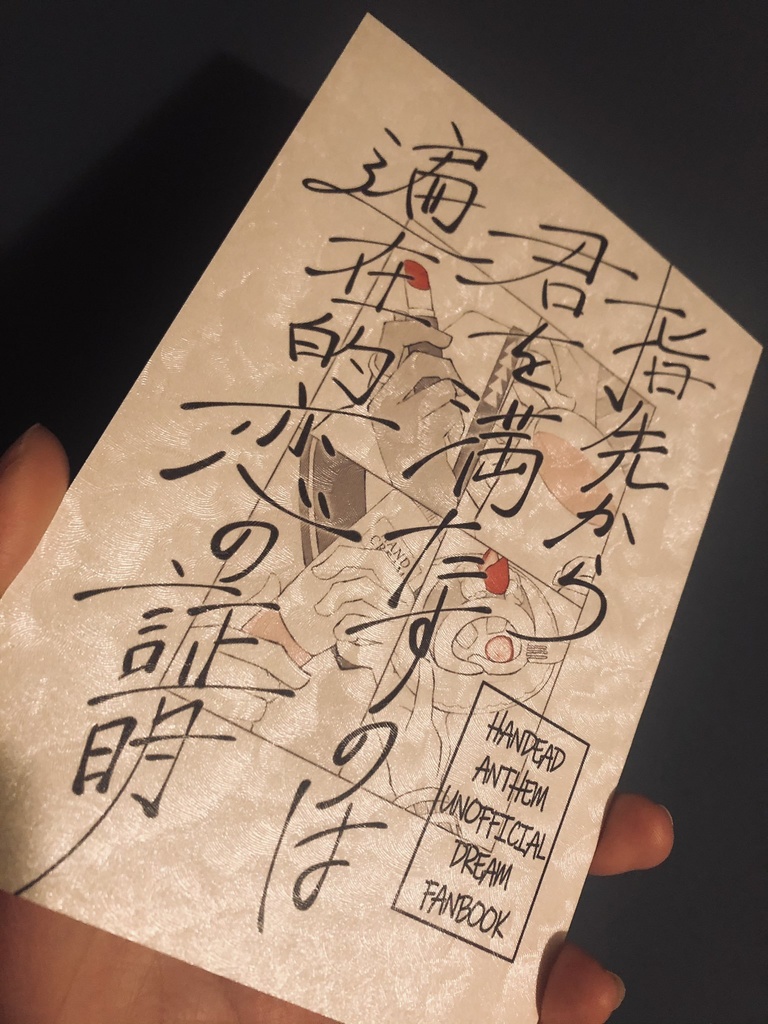 指先から
君を満たすのは
遍在的恋の証明
HANDEAD
ANTHEM
UNOFFICIAL
DREAM
FANBOOK